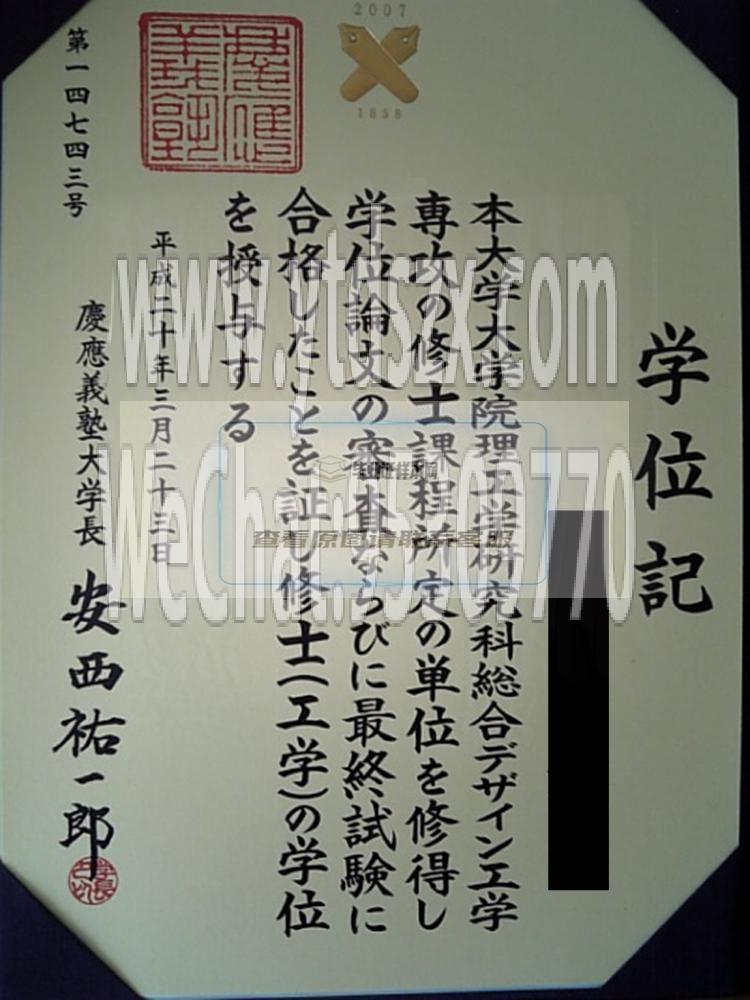 学位記
本大学大学院理工学研究科総合デザイン工学
専攻の修士課程所定の単位を修得し
学位論文の審査ならびに最終試験に
合格したことを証し修士(工学)の学位
を授与する
平成二十年三月二十三日
慶應義塾大学長 安西祐一郎
第一四七四三号
2007
1858
慶應義塾
www.ytlszx.com
查看原图请联系客服